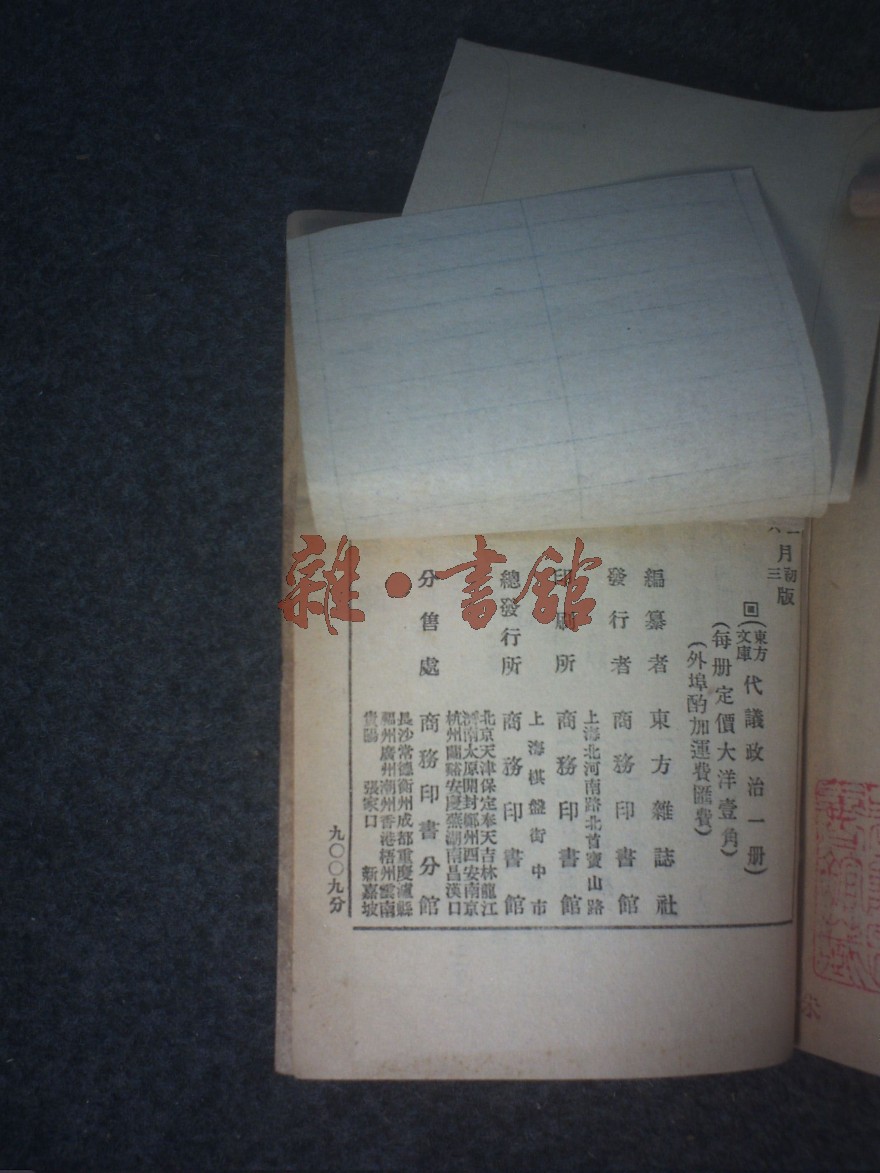 月初三版
回(東方文庫)代議政治一册)
(每册定價大洋壹角)
(外埠酌加運費匯費)
編纂者 東方雜誌社
發行者 商務印書館
上海北河南路北首寶山路
印刷所 商務印書館
上海棋盤街中市
總發行所 商務印書館
北京天津保定奉天吉林龍江
濟南太原開封鄭州西安南京
杭州蘭谿安慶蕪湖南昌漢口
分售處 商務印書分館
長沙常德衡州成都重慶瀘縣
福州廣州潮州香港梧州雲南
貴陽 張家口 新嘉坡
九〇〇九分
雜·書館